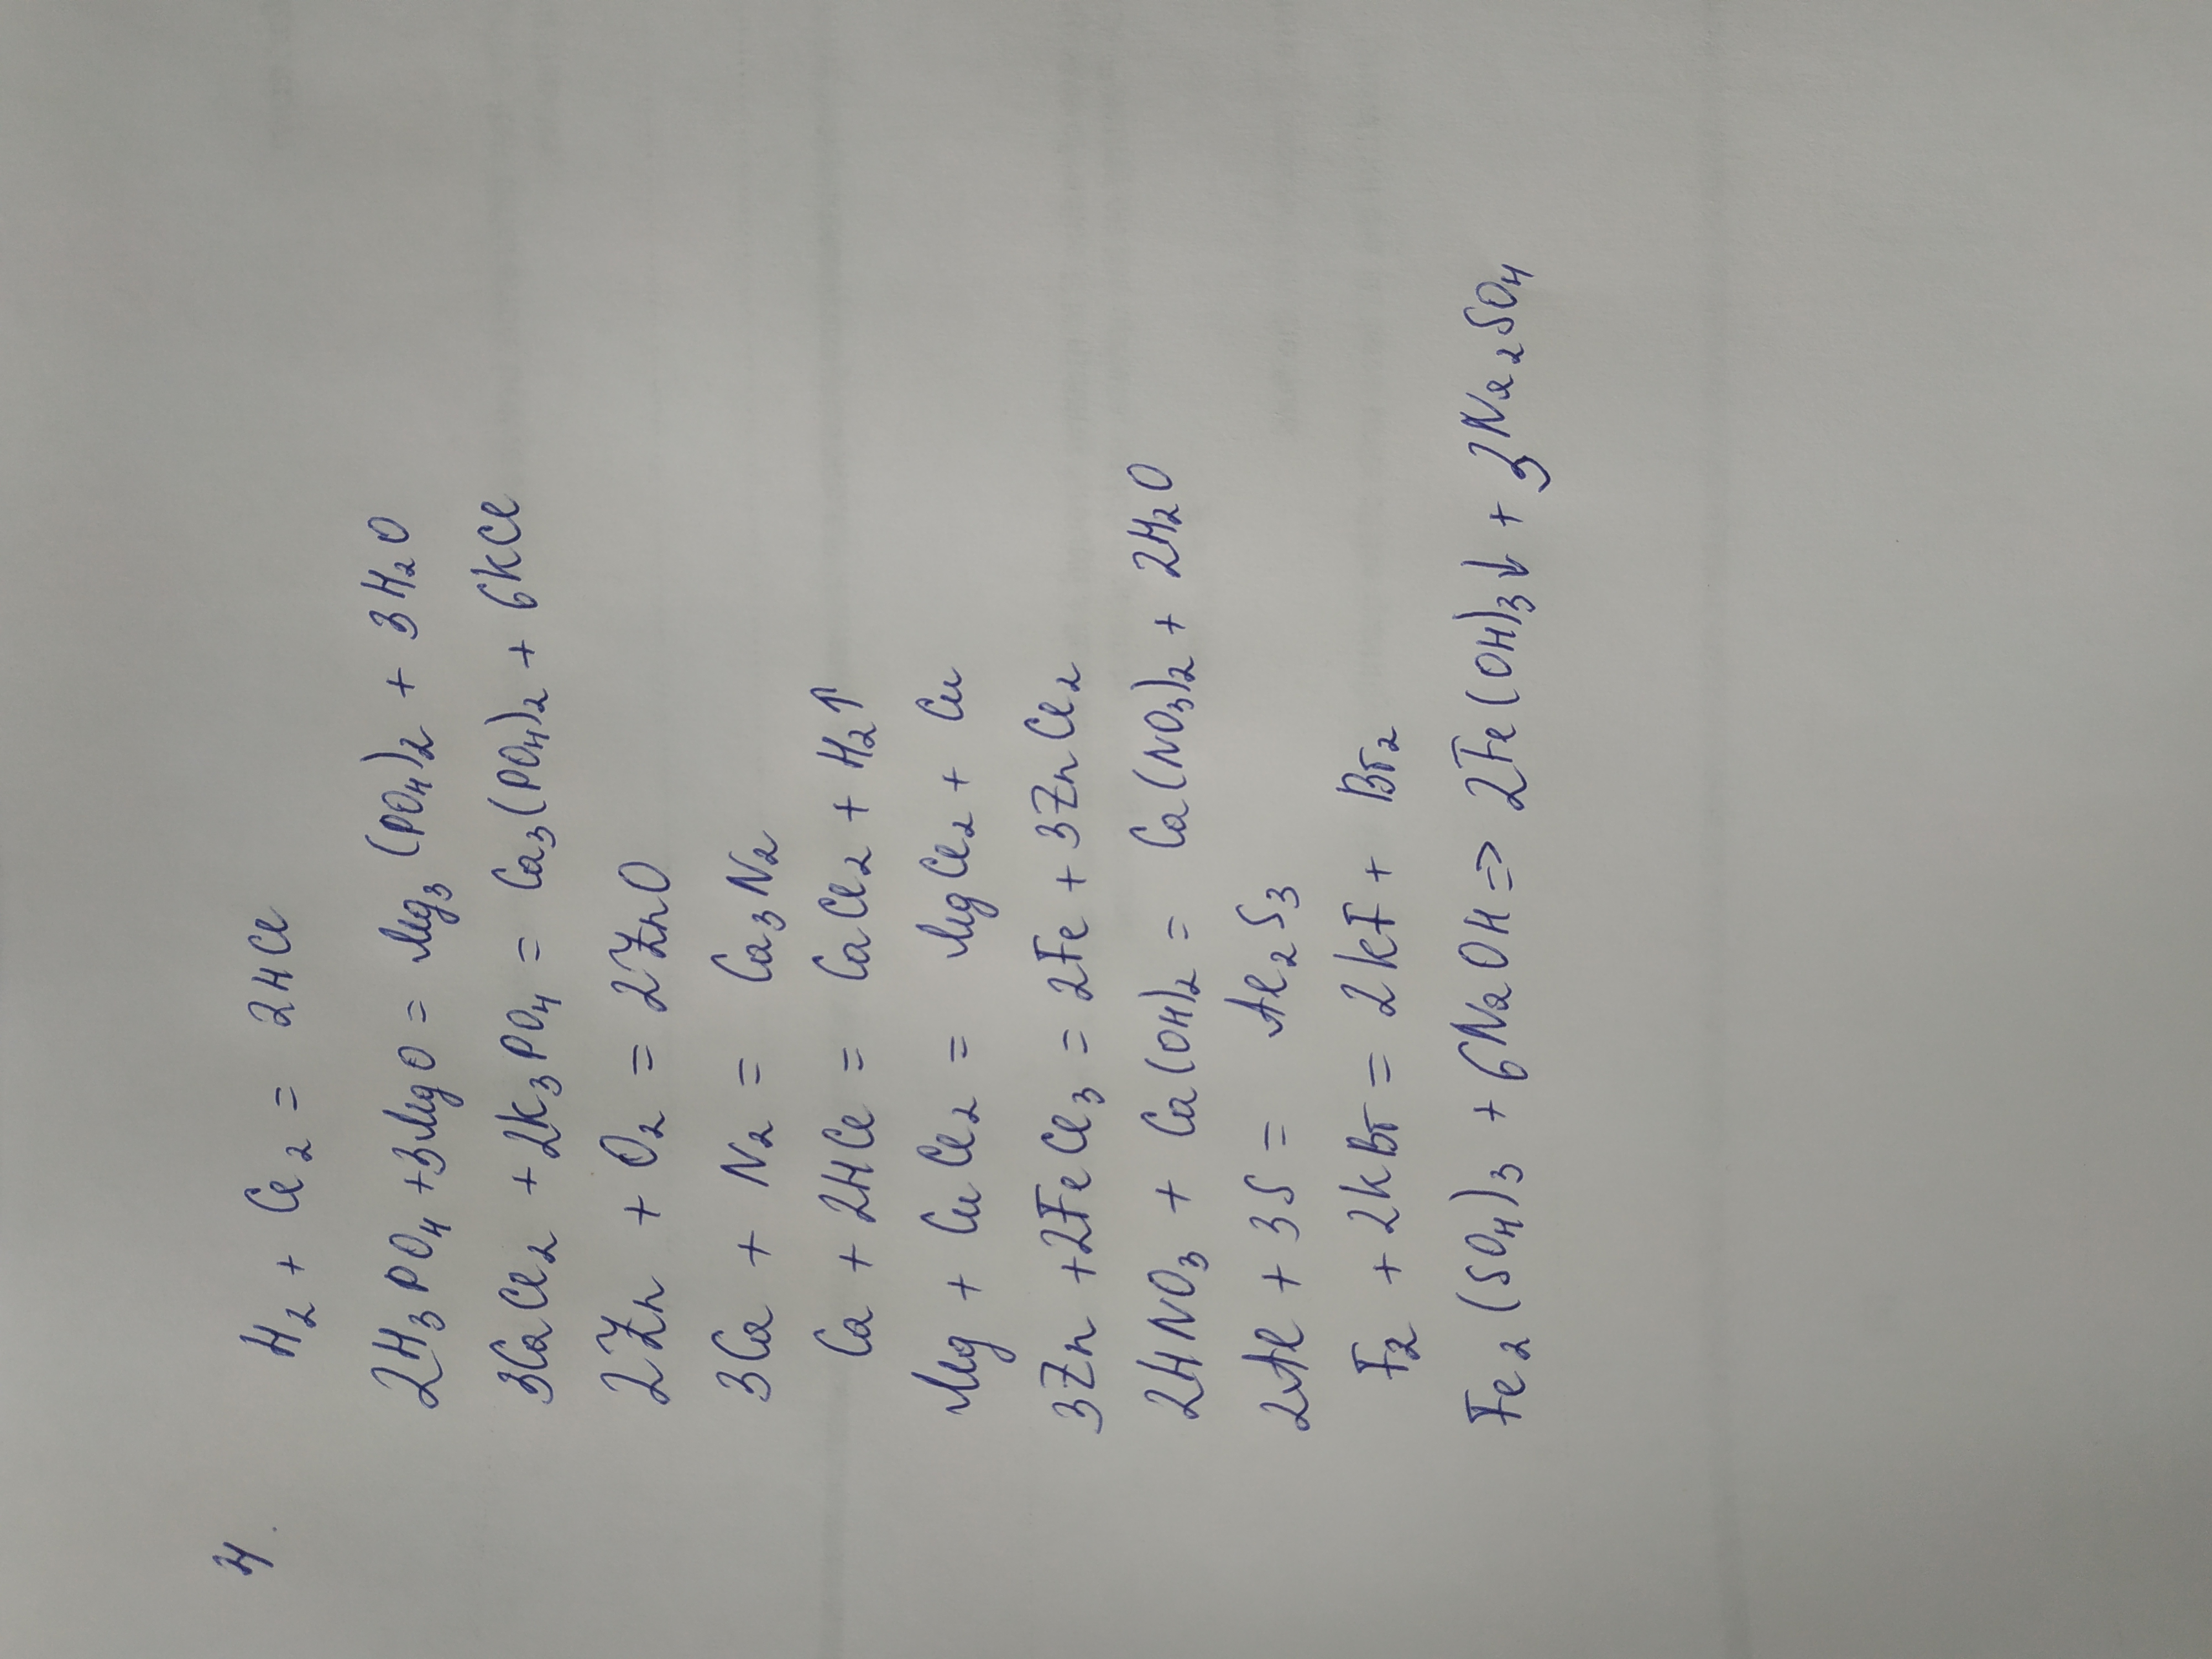 4.
H₂ + Cl₂ = 2HCl
2H₃PO₄ + 3MgO = Mg₃(PO₄)₂ + 3H₂O
3CaCl₂ + 2K₃PO₄ = Ca₃(PO₄)₂ + 6KCl
2Zn + O₂ = 2ZnO
3Ca + N₂ = Ca₃N₂
Ca + 2HCl = CaCl₂ + H₂↑
Mg + CuCl₂ = MgCl₂ + Cu
3Zn + 2FeCl₃ = 2Fe + 3ZnCl₂
2HNO₃ + Ca(OH)₂ = Ca(NO₃)₂ + 2H₂O
2Al + 3S = Al₂S₃
F₂ + 2KBr = 2KF + Br₂
Fe₂(SO₄)₃ + 6NaOH => 2Fe(OH)₃↓ + 3Na₂SO₄